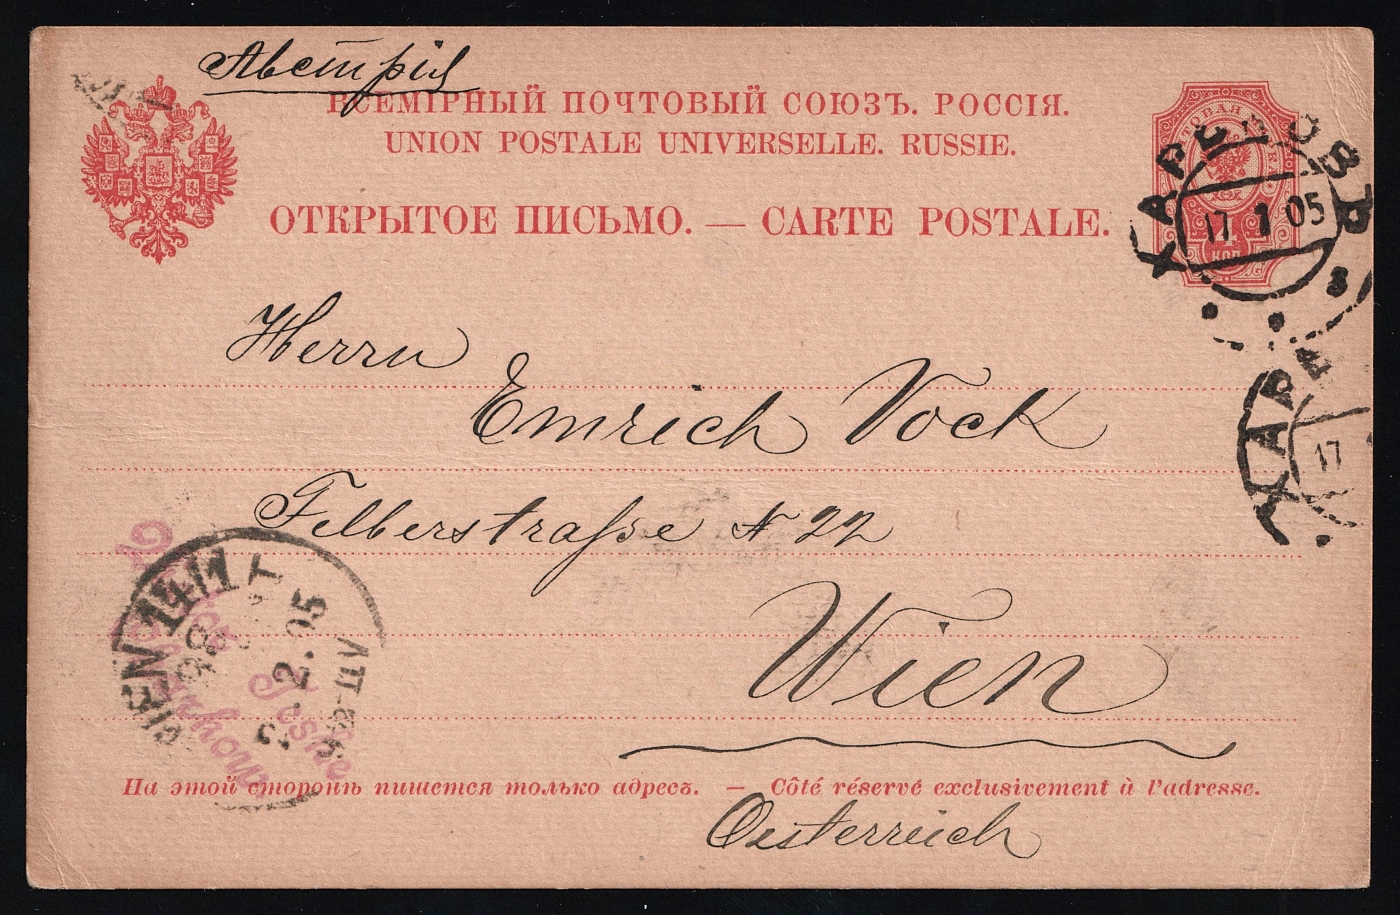 Австрія
ВСЕМІРНЫЙ ПОЧТОВЫЙ СОЮЗЪ. РОССІЯ.
UNION POSTALE UNIVERSELLE. RUSSIE.
ОТКРЫТОЕ ПИСЬМО. — CARTE POSTALE.
4
КОП
ХАРЬКОВЪ
17 1 05
ХАРЬ
17
Herrn
Emrich Vock
Felberstraße N 22
Wien
WIEN 14/1
2. 2. 05
Teske
На этой сторонѣ пишется только адресъ. — Côté réservé exclusivement à l'adresse.
Oesterreich